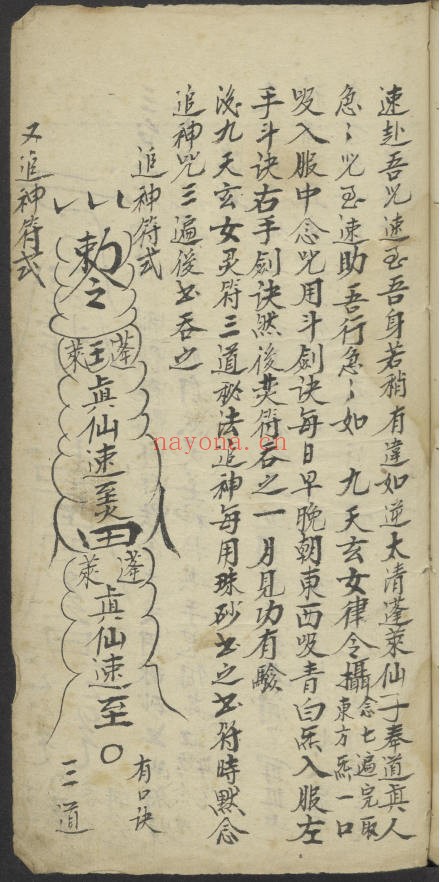 速赴吾咒速至吾身若稍有違如逆太清蓬萊仙子奉道真人
急〻咒至速助吾行急〻如 九天玄女律令攝念七遍完取東方炁一口
吸入服中念咒用斗劍訣每日早晚朝東西吸青白炁入服左
手斗訣右手劍訣然後焚符吞之一月見功有驗
後九天玄女灵符三道秘法追神每用珠砂书之书符時默念
追神咒三遍後书吞之
追神符式
勅令之
蓬王萊
真仙速至
田
蓬萊
真仙速至
有口訣
三道
又追神符式
nayona.cn